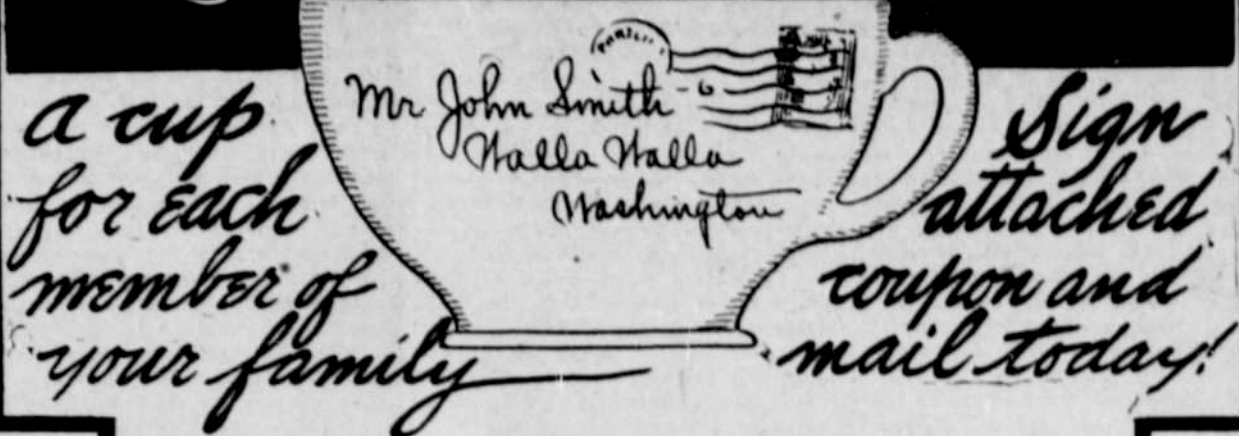 a cup
for each
member of
your family
Mr John Smith
Walla Walla
Washington
Sign
attached
coupon and
mail today!